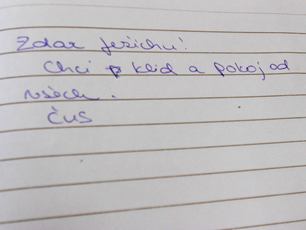 Zdar ježíchu!
Chci klid a pokoj od
všech.
Čus